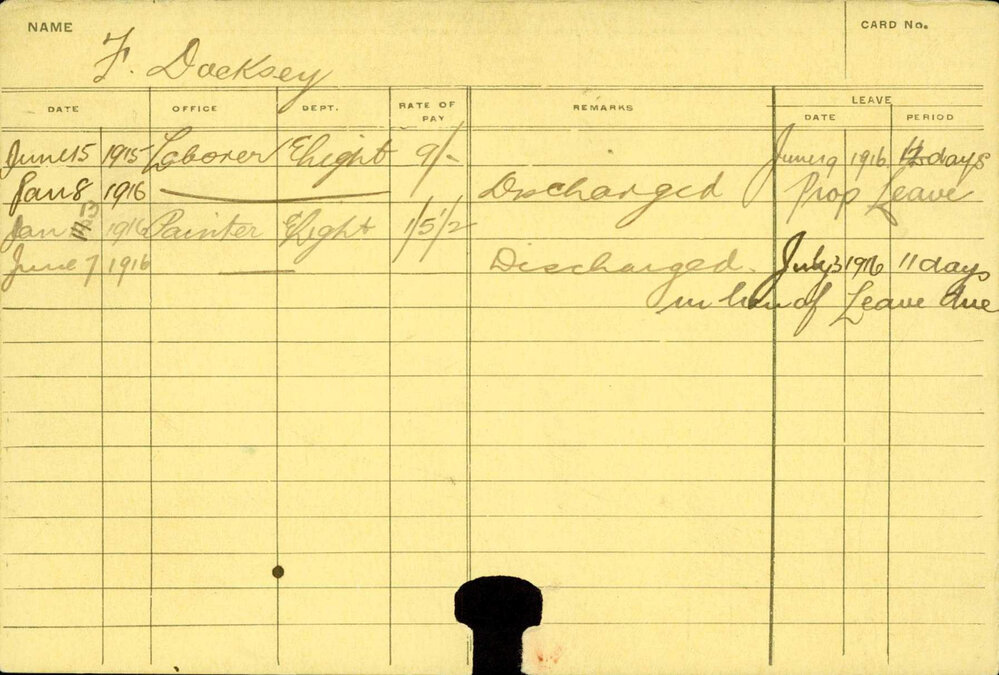 NAME F. Docksey CARD No.
DATE OFFICE DEPT. RATE OF PAY REMARKS LEAVE
DATE PERIOD
June 15 1915 Laborer E Light 9/- June 19 1916 12 days
Jan 8 1916 Discharged Prop Leave
Jan 13 1916 Painter E Light 1/5 1/2
June 7 1916 Discharged. July 3 1916 11 days
in lieu of Leave due